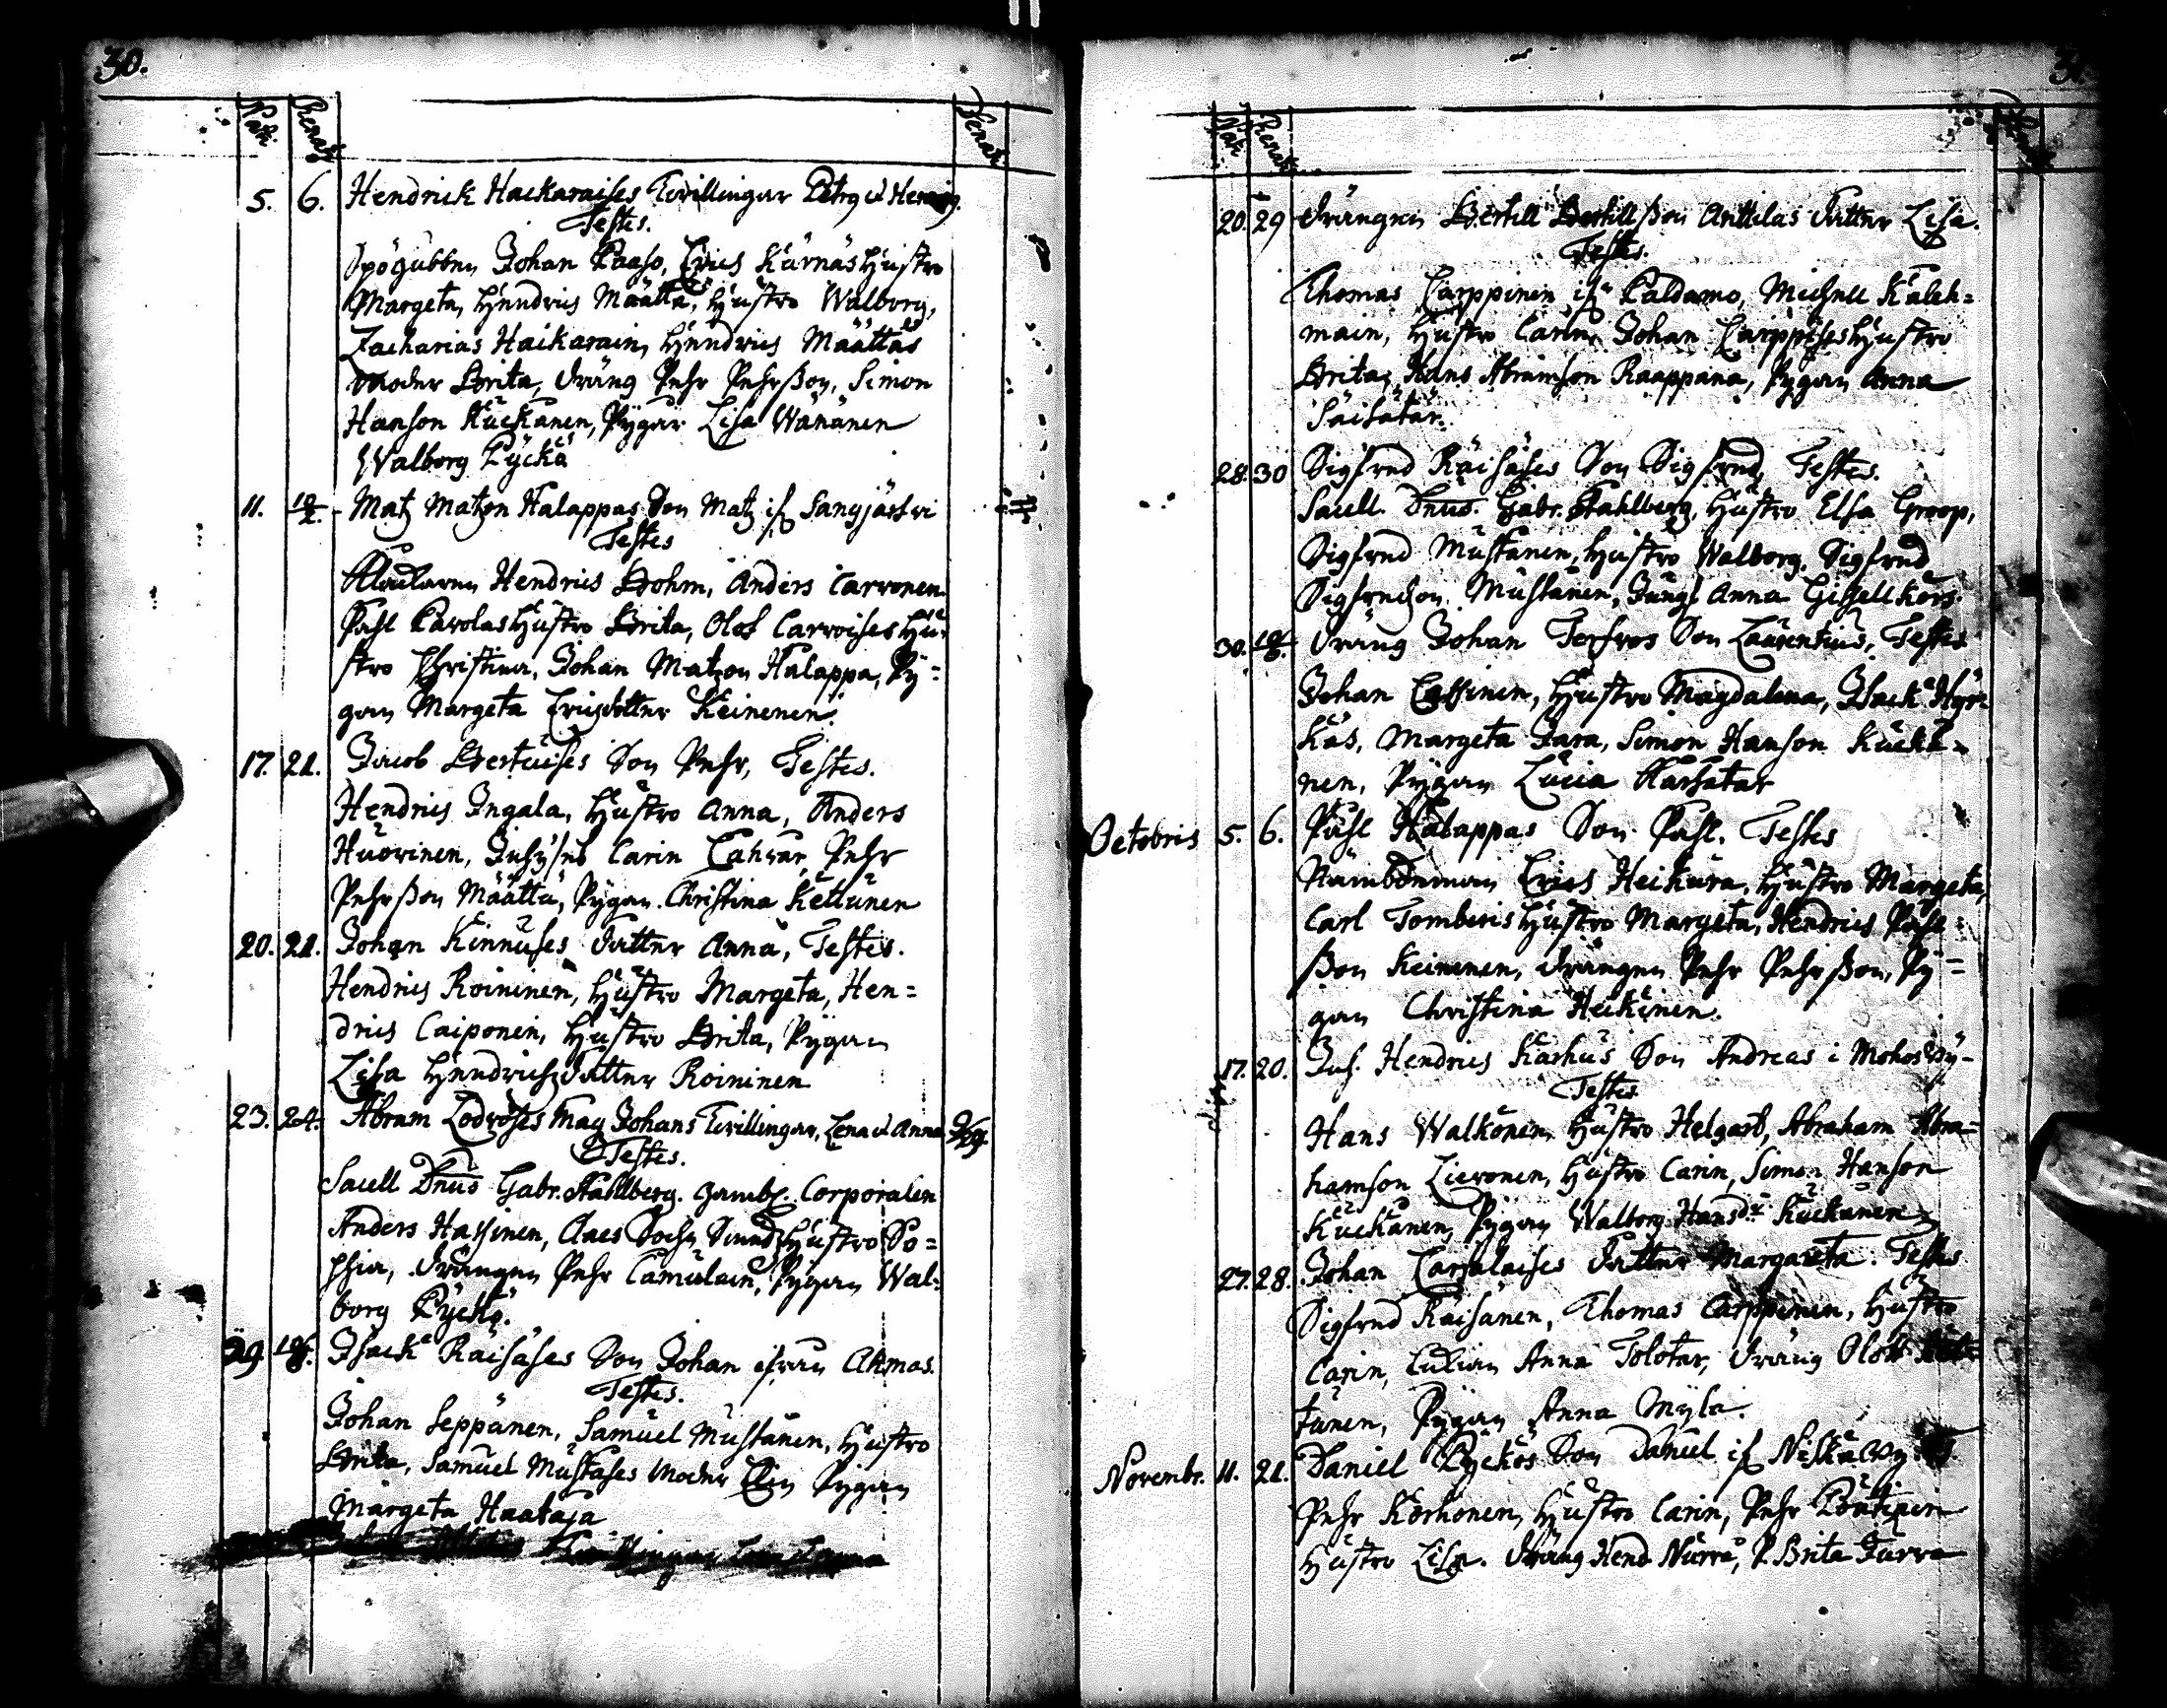 30.
Nati Renati Denati
5. 6. Hendrick Haikaraises Twillingar Petrg &
Testes.
Spögubben Johan Paaso, Erics Kurnäs Hustro
Margeta, Hendrics Määtta, Hustro Walborg,
Zacharias Haikarain, Hendrics Määttäs
Moder Brita, dräng Pehr Pehrßon, Simon
Hanson Kuckanen, Pygar Lisa Wänänen
Walborg Pyckä
11. Matz Matzon Halappas Son Matz if Sangjärfwi
Testes
Klockaren Hendrics Bohm, Anders Carvonen
Pahl Parolas Hustro Brita, Olof Carvoises Hu-
stro Christina, Johan Matzon Halappa, Py-
gan Margeta Ericsdotter Keinenen.
17. 21. Jacob Bertuises Son Pehr, Testes.
Hendrics Ingala, Hustro Anna, Anders
Huovinen, Carin Pehr
Pehrßon Määtta, Pygan Christina Kettunen
20. 21. Johan Kinnuses dotter Anna, Testes.
Hendrics Roininen, Hustro Margeta, Hen=
drics Caiponen, Hustro Brita, Pygan
Lisa Hendrichsdotter Roininen
23. 24. Abram Lodvoses Mag Johans Twillingar, Lena & Anna
Testes.
Sacell Dnus Gabr. Stahlberg. Corporalen
Anders Hassinen, Claes Hustro So=
phia, drängen Pehr Camulain, Pygan Wal-
borg Pyckä.
29. Isack Räisäses Son Johan ifrån Ahmas.
Testes.
Johan Seppänen, Samuel Mustanen, Hustro
Brita, Samuel Mustases Moder Elin Pygan
Margeta Haataja
Nati Renati
20. 29 drängen Bertill Bertillßon Anttilas dotter Lisa.
Testes.
Thomas Carppinen if Paldamo, Michell Kaleh=
main, Hustro Carin, Johan Carppises Hustro
Brita, Hans Abramson Raappana, Pygan Anna
Säisatar.
28. 30 Sigfred Räisäses Son Sigfred, Testes.
Sacell. Dnus. Gabr. Stahlberg, Hustro Elsa Groop,
Sigfred Mustanen, Hustro Walborg. Sigfred
Sigfredson Mustanen, Jungf Anna Gissellkors.
30. dräng Johan Torfvos Son Laurentius, Testes
Johan Hustro Magdalena, Isack Hyr=
käs, Margeta Jara, Simon Hanson Kucka-
nen, Pygan Lucia
Octobris 5. 6. Pahl Halappas Son Pahl. Testes
Nämbdeman Erics Heikura, Hustro Margeta,
Carl Tomberis Hustro Margeta, Hendrics Pahl-
ßon Keinenen, drängen Pehr Pehrßon, Py=
gan Christina Heikinen.
17. 20. Inh. Hendrics Karhus Son Andreas i Mohosby-
Testes
Hans Walkonen, Hustro Helgard, Abraham Abra=
hamson Lievonen, Hustro Carin, Simon Hanson
Kuckanen, Pygan Walborg Hansdr Kuckanen
27. 28. Johan Carjalaises dotter Margareta. Testes
Sigfred Räisänen, Thomas Carppinen, Hustro
Carin, Anna Tolotar, dräng Oloff
tunen, Pygan Anna Myla.
Novembr. 11. 21. Daniel Pyckös Son Daniel if Niskaby
Pehr Korhonen, Hustro Carin, Pehr
Hustro Lisa. dräng Hend Nurra, P. Brita Jurva